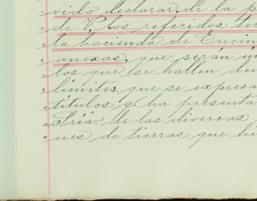 vido declarar, de la p
de V. los referidos ter
la hacienda de Encin
anexas, que seran in
los que se hallen den
limites que se expresa
titulos q. ha presenta
tria de las diversas
nes de tierras que hi